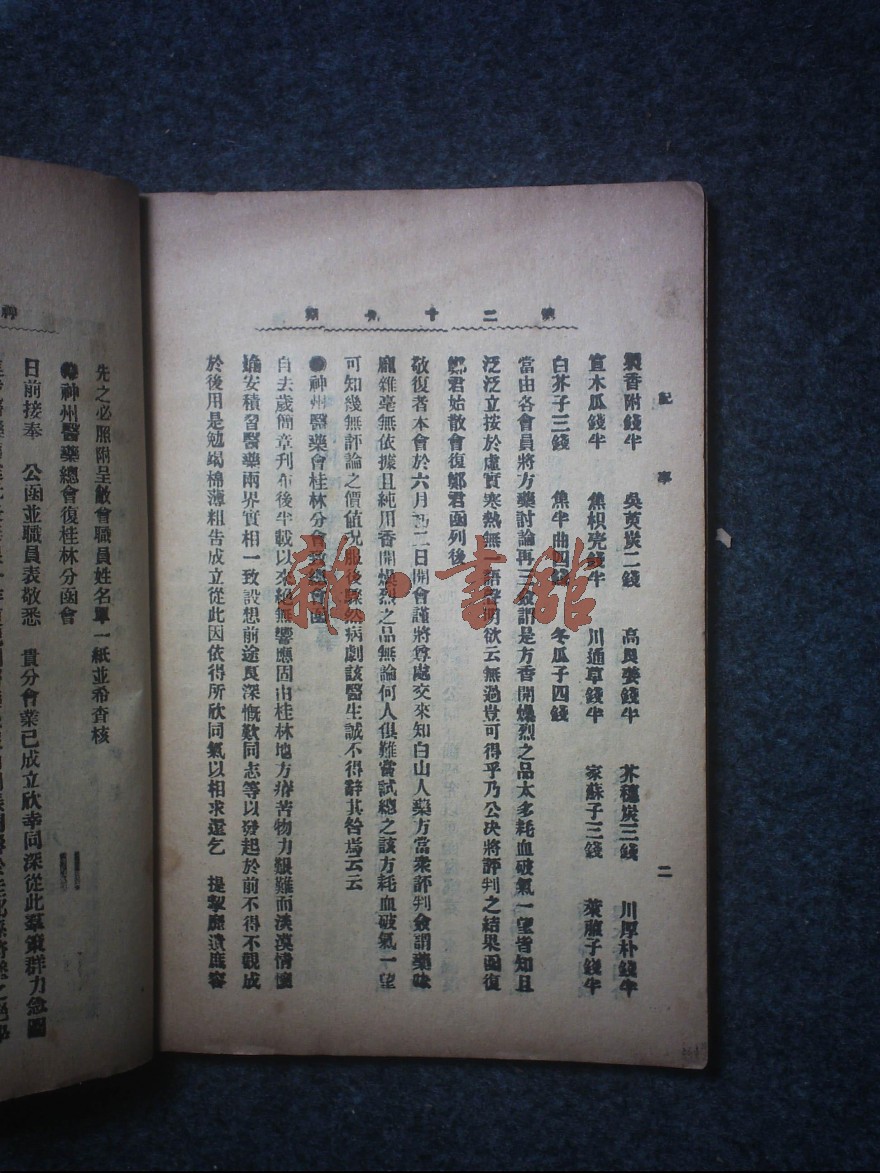 二十期
記事
二
製香附錢半 吳萸炭二錢 高良姜錢半 芥穗炭三錢 川厚朴錢半
宣木瓜錢半 焦枳壳錢半 川通草錢半 家蘇子三錢 萊菔子錢半
白芥子三錢 焦半曲四錢 冬瓜子四錢
當由各會員將方藥討論再三僉謂是方香開燥烈之品太多耗血破氣一望皆知且
泛泛立按於虛實寒熱無一語聲明欲云無過豈可得乎乃公决將評判之結果函復
鄭君始散會復鄭君函列後
敬復者本會於六月 二日開會謹將尊處交來知白山人藥方當衆評判僉謂藥味
龐雜毫無依據且純用香開燥烈之品無論何人俱難嘗試總之該方耗血破氣一望
可知幾無評論之價値况服後驟然病劇該醫生誠不得辭其咎焉云云
●神州醫藥會桂林分會致總會函
自去歲簡章刊布後半載以來絕無響應固由桂林地方瘠苦物力艱難而淡漠情懷
婾安積習醫藥兩界實相一致設想前途良深慨歎同志等以發起於前不得不觀成
於後用是勉竭棉薄粗告成立從此因依得所欣同氣以相求還乞 提挈歷遺庶容
先之必照附呈敝會職員姓名單一紙並希查核
●神州醫藥總會復桂林分函會
日前接奉 公函並職員表敬悉 貴分會業已成立欣幸同深從此羣策群力急圖
神
雜·書館